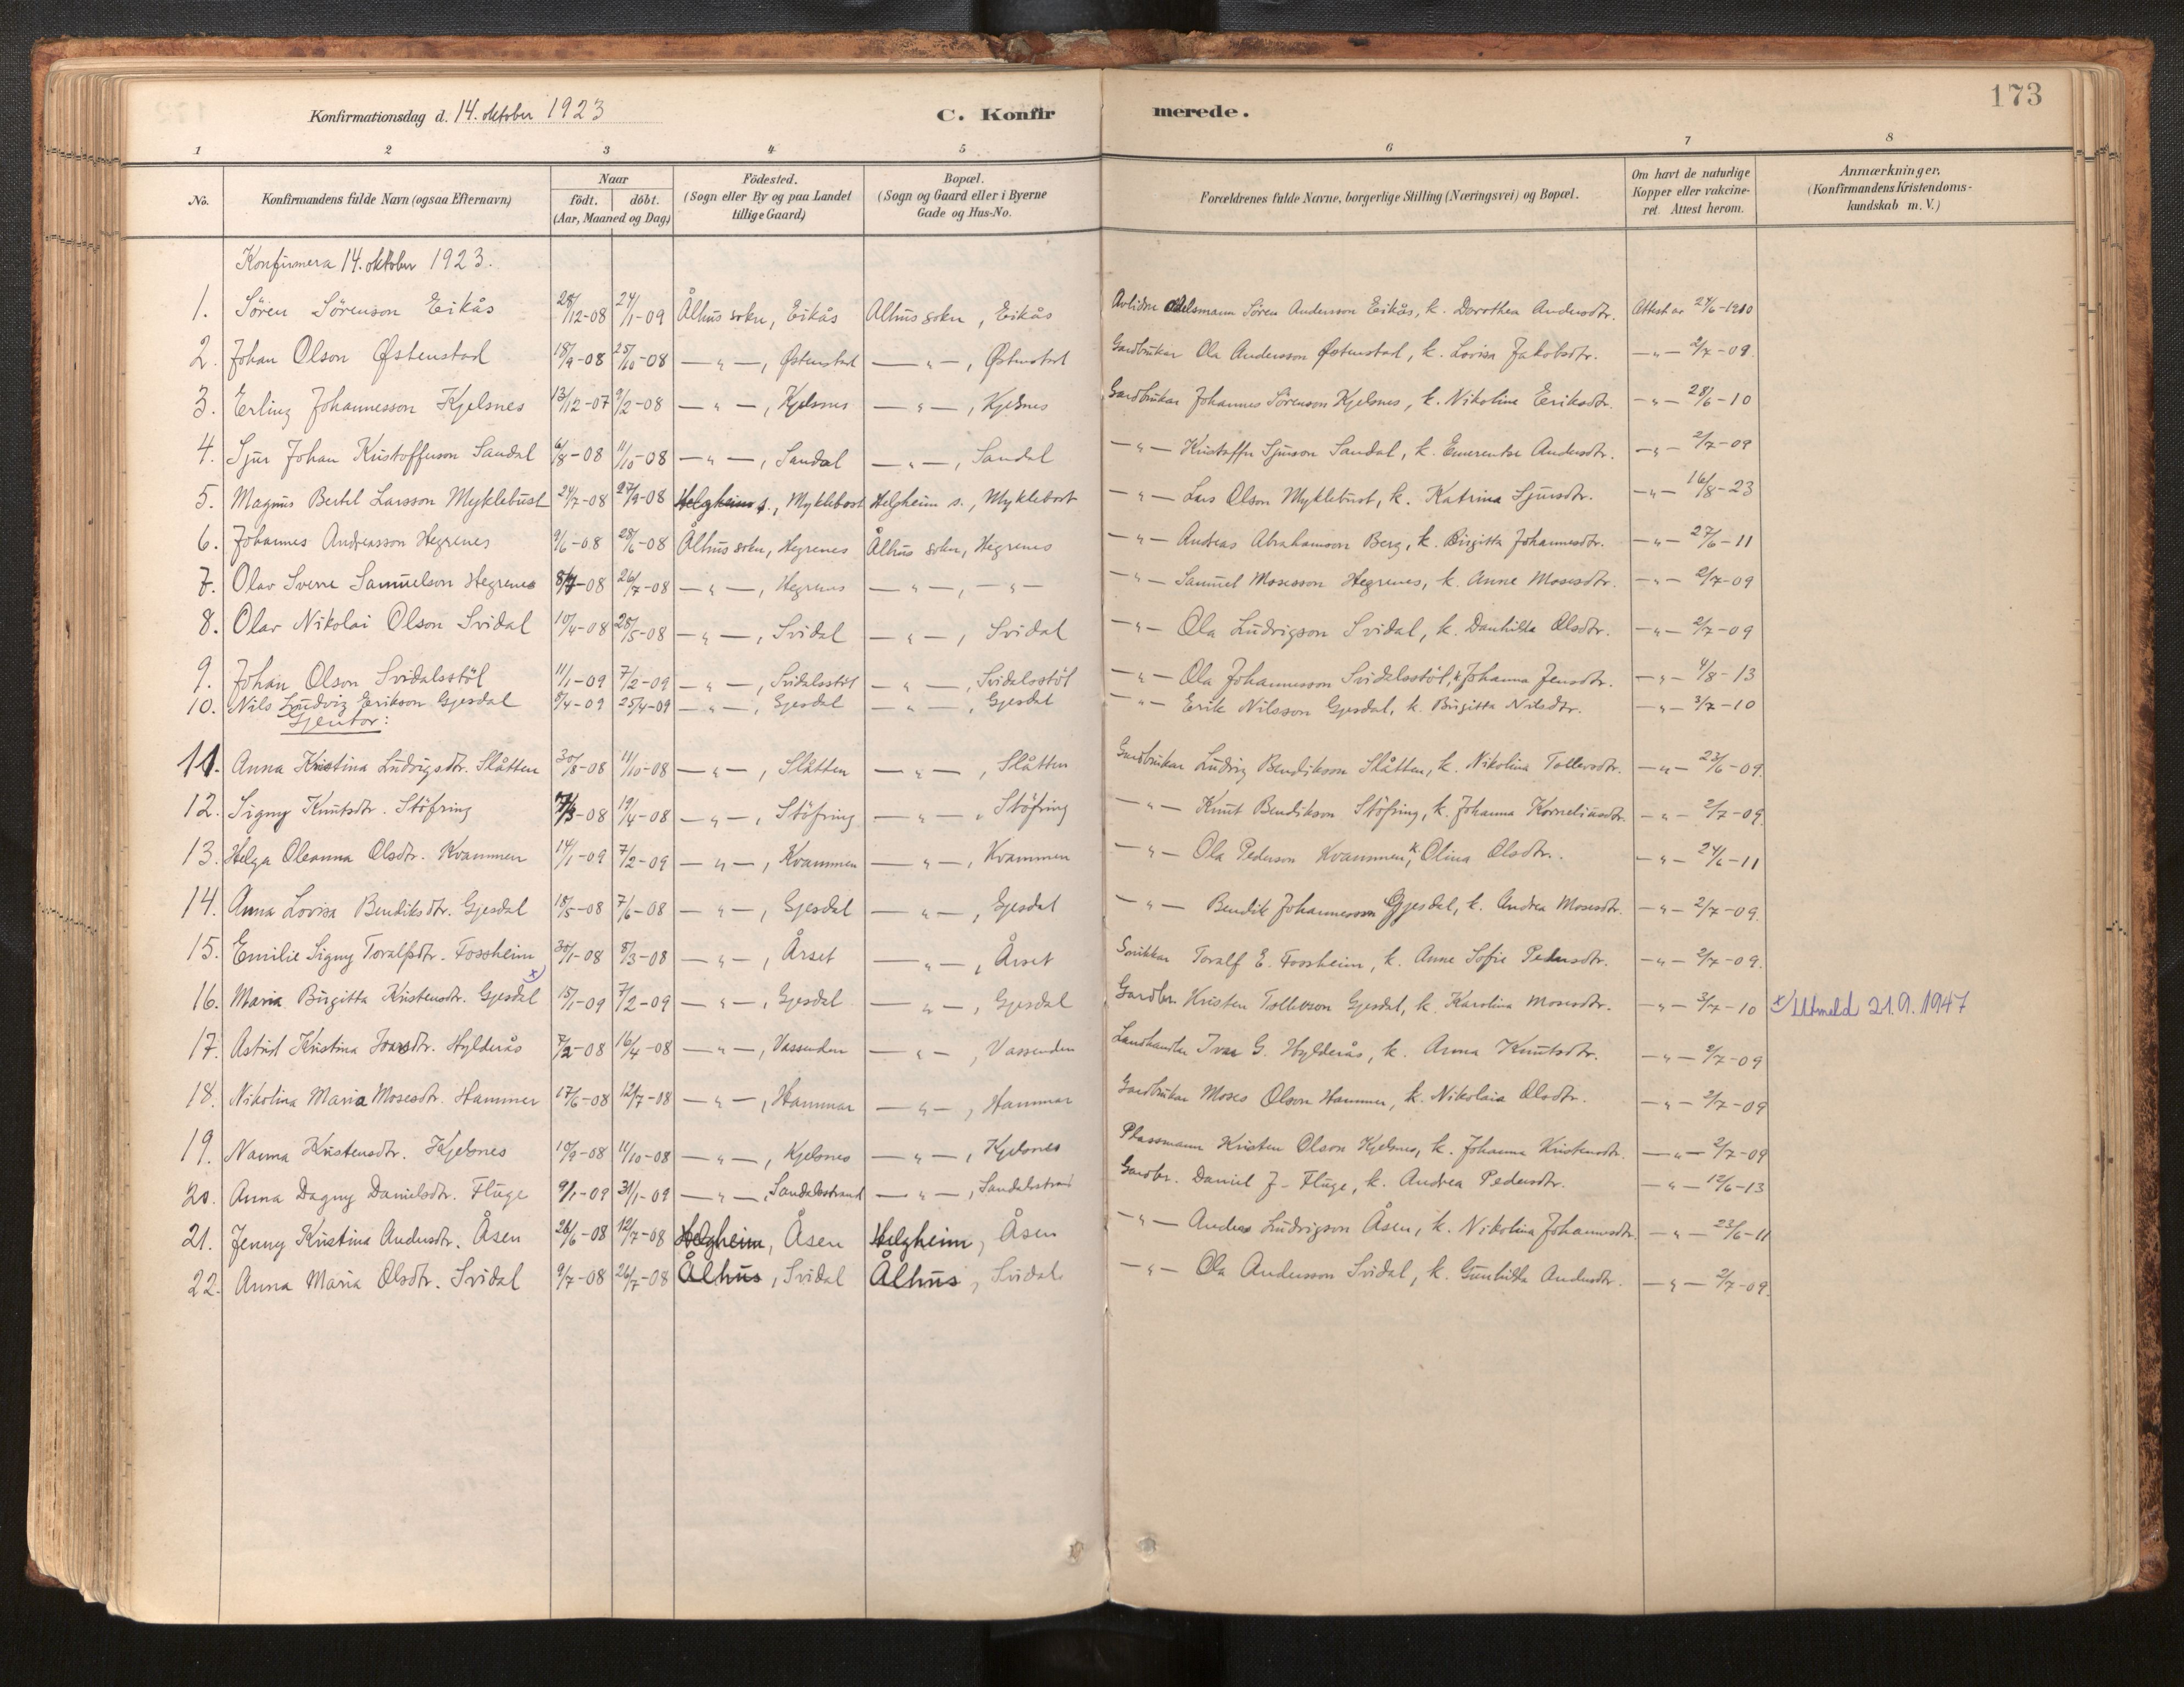 173
Konfirmationsdag d. 14. oktober 1923 C. Konfirmerede.
1 2 3 4 5 6 7 8
No. Konfirmandens fulde Navn (ogsaa Efternavn) Naar födt. döbt. (Aar, Maaned og Dag) Födested. (Sogn eller By og paa Landet tillige Gaard) Bopæl. (Sogn og Gaard eller i Byerne Gade og Hus-No. Forældrenes fulde Navne, borgerlige Stilling (Næringsvei) og Bopæl. Om havt de naturlige Kopper eller vakcineret. Attest herom. Anmærkninger, (Konfirmandens Kristendomskundskab m. V.)
Konfirmera 14. oktober 1923.
1. Sören Sörenson Eikås 28/12-08 24/1-09 Ålhus sokn, Eikås Ålhus sokn, Eikås Avlidne Odelsmann Sören Andersson Eikås, k. Dorothea Andersdtr. Attest av 24/6-1910
2. Johan Olson Østenstad 18/9-08 25/10-08 —"—, Østenstad —"—, Østenstad Gardbrukar Ola Andersson Østenstad, k. Lovisa Jakobsdtr. —"— 2/7-09
3. Erling Johannesson Kjelsnes 13/12-07 9/2-08 —"—, Kjelsnes —"—, Kjelsnes Gardbrukar Johannes Sörenson Kjelsnes, k. Nikoline Eriksdtr. —"— 28/6-10
4. Sjur Johan Kristofferson Sandal 6/8-08 11/10-08 —"—, Sandal —"—, Sandal —"— Kristoffer Sjurson Sandal, k. Emerentse Andersdtr. —"— 2/7-09
5. Magnus Bertel Larsson Myklebust 24/7-08 27/9-08 Helgheim s., Myklebost Helgheim s., Myklebost —"— Lars Olson Myklebust, k. Katrina Sjursdtr. —"— 16/8-23
6. Johannes Andreasson Hegrenes 9/6-08 28/6-08 Ålhus sokn, Hegrenes Ålhus sokn, Hegrenes —"— Andreas Abrahamson Berg, k. Birgitta Johannesdtr. —"— 27/6-11
7. Olav Sverre Samuelson Hegrenes 8/7-08 26/7-08 —"—, Hegrenes —"—, —"— —"— Samuel Mosesson Hegrenes, k. Anne Mosesdtr. —"— 2/7-09
8. Olav Nikolai Olson Svidal 10/4-08 28/5-08 —"—, Svidal —"—, Svidal —"— Ola Ludvigson Svidal, k. Danhilda Olsdtr. —"— 2/7-09
9. Johan Olson Svidalsstöl 11/1-09 7/2-09 —"—, Svidalsstöl —"—, Svidalsstöl —"— Ola Johannesson Svidalsstöl, k. Johanna Jensdtr. —"— 4/8-13
10. Nils Ludvig Erikson Gjesdal 8/4-09 25/4-09 —"—, Gjesdal —"—, Gjesdal —"— Erik Nilsson Gjesdal, k. Birgitta Nilsdtr. —"— 3/7-10
Gjentor:
11. Anna Kristina Ludvigsdtr. Slåtten 30/8-08 11/10-08 —"—, Slåtten —"—, Slåtten Gardbrukar Ludvig Bendikson Slåtten, k. Nikolina Tollevsdtr. —"— 23/6-09
12. Signy Knutsdtr. Stöfring 7/3-08 19/4-08 —"—, Stöfring —"—, Stöfring —"— Knut Bendikson Stöfring, k. Johanna Korneliusdtr. —"— 2/7-09
13. Helga Oleanna Olsdtr. Kvammen 14/1-09 7/2-09 —"—, Kvammen —"—, Kvammen —"— Ola Pederson Kvammen, k. Olina Olsdtr. —"— 24/6-11
14. Anna Lovisa Bendiksdtr. Gjesdal 18/5-08 7/6-08 —"—, Gjesdal —"—, Gjesdal —"— Bendik Johannesson Gjesdal, k. Andrea Mosesdtr. —"— 2/7-09
15. Emilie Signy Toralfsdtr. Fossheim 30/1-08 8/3-08 —"—, Årset —"—, Årset Snikkar Toralf E. Fossheim, k. Anne Sofie Pedersdtr. —"— 2/7-09
16. Maria Birgitta Kristensdtr. Gjesdal x) 15/1-09 7/2-09 —"—, Gjesdal —"—, Gjesdal Gardbr. Kristen Tolleivson Gjesdal, k. Karolina Mosesdtr. —"— 3/7-10 x) Utmeld 21.9.1947
17. Astrid Kristina Ivarsdtr. Hylderås 7/2-08 16/4-08 —"—, Vassenden —"—, Vassenden Landhandlar Ivar G. Hylderås, k. Anna Knutsdtr. —"— 2/7-09
18. Nikolina Maria Mosesdtr. Hammer 17/6-08 12/7-08 —"—, Hammar —"—, Hammar Gardbrukar Moses Olson Hammer, k. Nikolaia Olsdtr. —"— 2/7-09
19. Nanna Kristensdtr. Kjelsnes 10/9-08 11/10-08 —"—, Kjelsnes —"—, Kjelsnes Plassmann Kristen Olson Kjelsnes, k. Johanna Kristensdtr. —"— 2/7-09
20. Anna Dagny Danielsdtr. Fluge 9/1-09 31/1-09 —"—, Sandalsstrand —"—, Sandalsstrand Gardbr. Daniel J. Fluge, k. Andrea Pedersdtr. —"— 12/6-13
21. Jenny Kristina Andersdtr. Åsen 26/6-08 12/7-08 Helgheim, Åsen Helgheim, Åsen —"— Anders Ludvigson Åsen, k. Nikolina Johannesdtr. —"— 23/6-11
22. Anna Maria Olsdtr. Svidal 9/7-08 26/7-08 Ålhus, Svidal Ålhus, Svidal —"— Ola Andersson Svidal, k. Gunhilda Andersdtr. —"— 2/7-09.